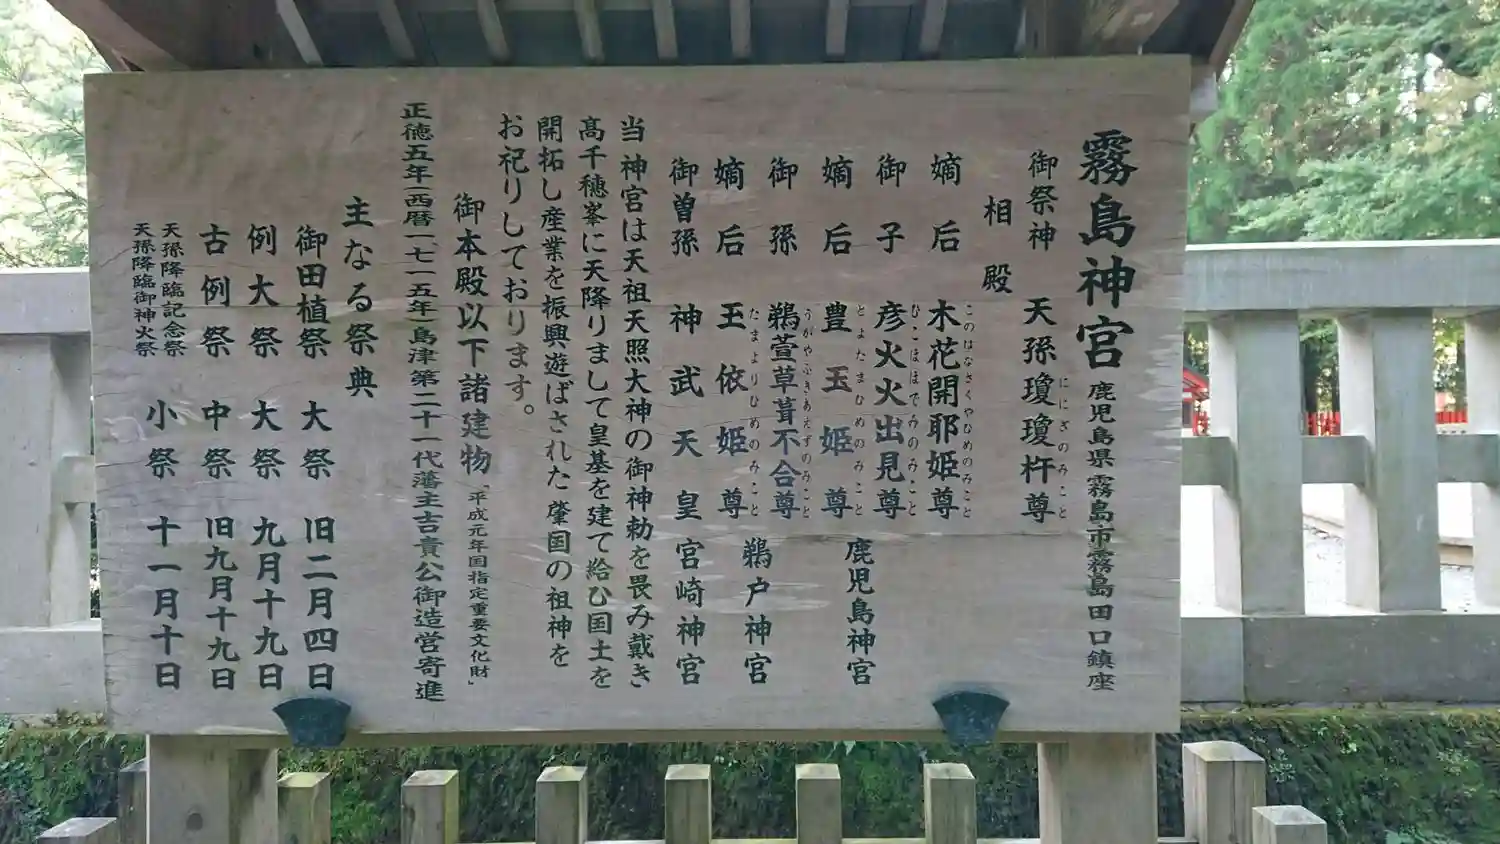 霧島神宮 鹿児島県霧島市霧島田口鎮座
御祭神 天孫瓊瓊杵尊
ににぎのみこと
相殿
嫡后 木花開耶姫尊
このはなさくやひめのみこと
御子 彦火火出見尊
ひこほほでみのみこと
嫡后 豊玉姫尊 鹿児島神宮
とよたまひめのみこと
御孫 鵜萱草葺不合尊
うがやふきあえずのみこと
鵜戸神宮
嫡后 玉依姫尊
たまよりひめのみこと
御曽孫 神武天皇 宮崎神宮
当神宮は天祖天照大神の御神勅を畏み戴き
高千穂峯に天降りまして皇基を建て給ひ国土を
開拓し産業を振興遊ばされた肇国の祖神を
お祀りしております。
御本殿以下諸建物「平成元年国指定重要文化財」
正徳五年(西暦一七一五年)島津第二十一代藩主吉貴公御造営寄進
主なる祭典
御田植祭 大祭 旧二月四日
例大祭 大祭 九月十九日
古例祭 中祭 旧九月十九日
天孫降臨記念祭
天孫降臨御神火祭
小祭 十一月十日